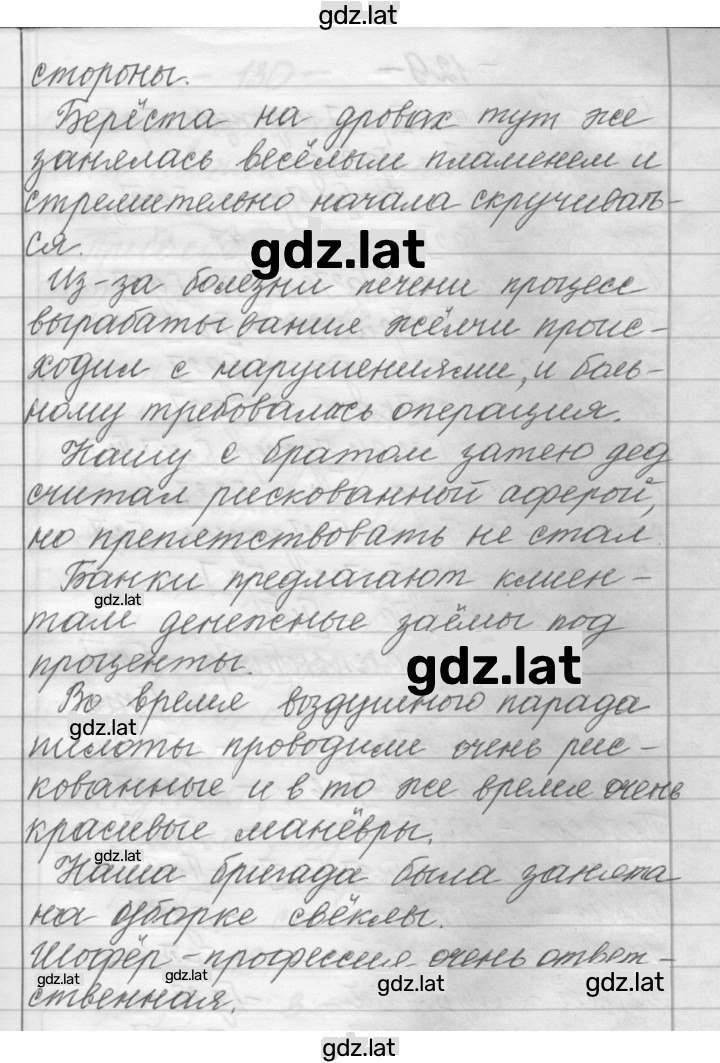 gdz.lat
стороны.
Берёста на дровах тут же
занялась весёлым пламенем и
стремительно начала скручивать-
ся.
gdz.lat
Из-за болезни печени процесс
вырабатывания жёлчи проис-
ходил с нарушениями, и боль-
ному требовалась операция.
Нашу с братом затею дед
считал рискованной аферой,
но препятствовать не стал.
Банки предлагают клиен-
gdz.lat
там денежные заёмы под
проценты.
gdz.lat
Во время воздушного парада
gdz.lat
пилоты проводили очень рис-
кованные и в то же время очень
красивые манёвры.
gdz.lat
Наша бригада была занята
на уборке свёклы.
Шофёр - профессия очень ответ-
gdz.lat gdz.lat gdz.lat gdz.lat
ственная.
gdz.lat